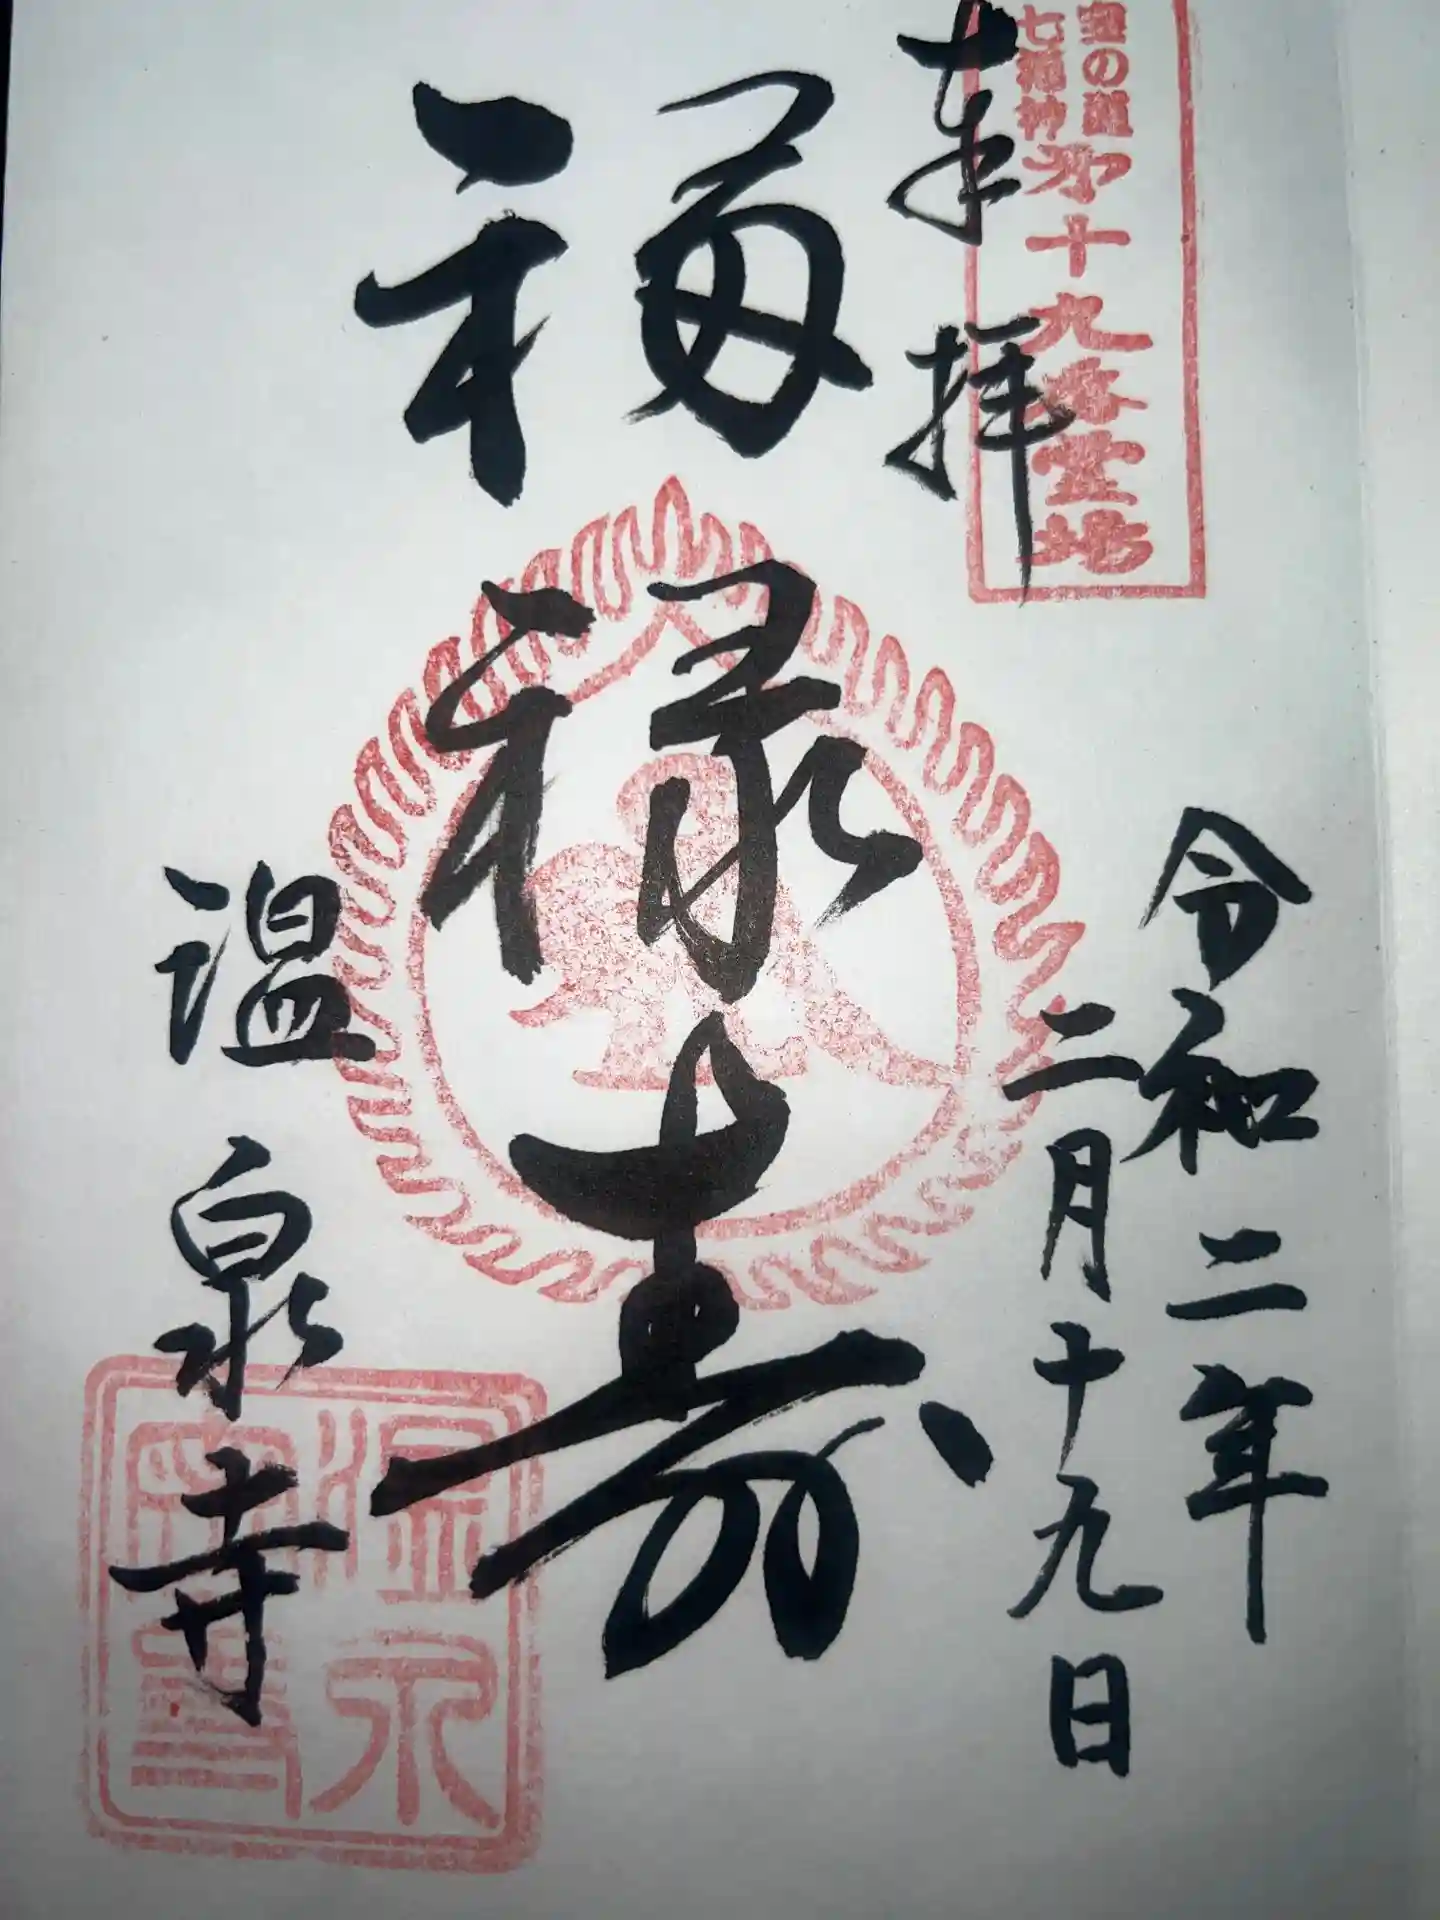 宝の道
七福神
第十九番霊場
奉拝
令和二年
二月十九日
福禄寿
温泉寺